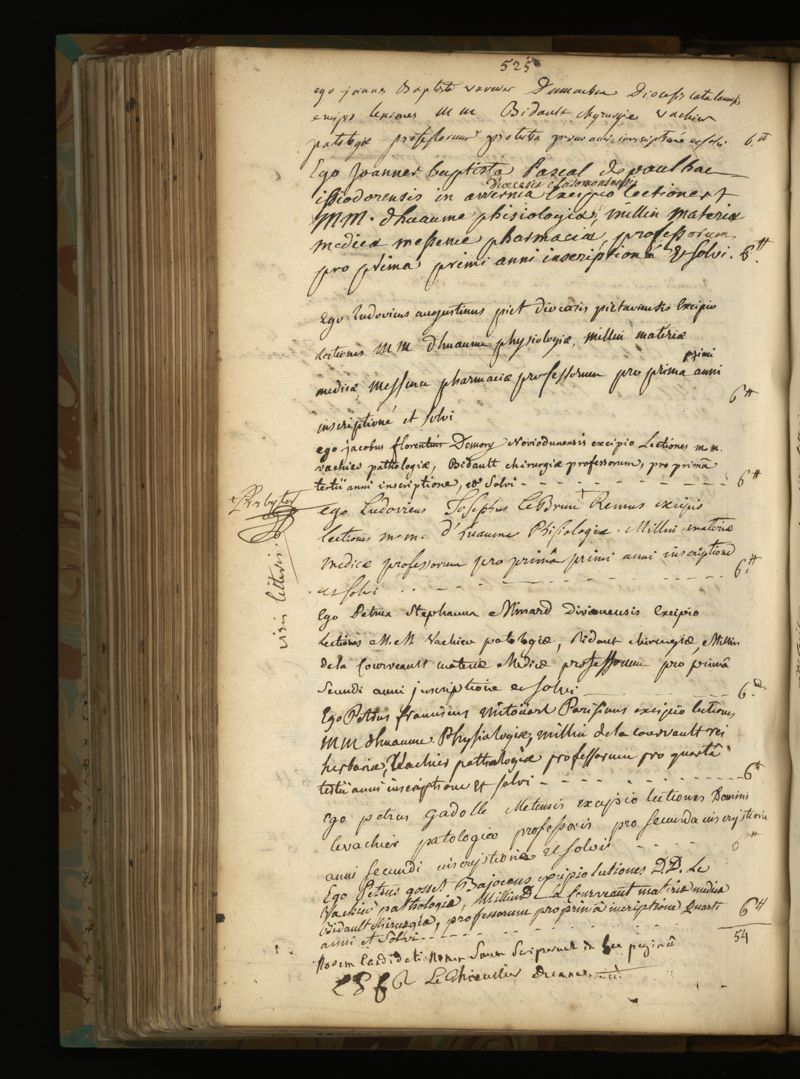 525
ego joannes Baptist varnier Diocesis catalaunensis
excipio lexiones m m Bidault chyrurgiæ vachier
patologiæ professorum pro prima inscriptione et solvi 6.tt
Ego Joannes baptista Pascal de vaulhac
Diocesis claromontensis
issiodorensis in avernia Excipio lectiones
MM. dhuaume phisiologiæ, millin materiæ
medicæ messence pharmaciæ professorum.
pro prima primi anni inscriptione & solvi. 6.tt
Ego ludovicus augustinus pict diocæsis pictaviensis Excipio
lectiones MM dhuaume physiologiæ, millin materiæ
primi
medicæ, messence pharmaciæ professorum pro prima anni
inscriptione et solvi 6tt
ego jacobus florentius Demory Noviodunensis excipio Lectiones m.m.
vachier pathologiæ, Bidault chirurgiæ professorum, pro primâ
tertii anni inscriptione, et Solvi 6tt
Presbyter
visis litteris.
ego Ludovicus Josephus LeBrun Remus excipio
lectiones m.m. d'huaume Phisiologiæ. Millin materiæ
medicæ professorum pro primâ primi anni inscriptione
et solvi 6.tt
Ego Petrus Stephanus Minard Divionensis Excipio
Lectiones M.M. Vachier patologiæ, Bidault chirurgiæ, Millin
de la Courveault materiæ Medicæ professorum pro primâ
Secundi anni inscriptione et solvi 6.
Ego Petrus franciscus mitoüart Parisinus excipio lectiones
MM dhuaume Physiologiæ, millin de la courvault rei
herbariæ, Vachier pathologiæ professorum pro quartâ
tertii anni inscriptione et solvi 6tt
Ego petrus Gadolle Metensis excipio lectiones Domini
levachier patologiæ professoris pro secunda inscryptione
anni secundi et solvi 6tt
Ego Petrus gosset Bajocæus excipio lectiones D.D. Le
Vachier pathologiæ, Millin De la Courveaut materiæ medicæ
Bidault chirurgiæ, professorum pro primâ incriptione quarti
anni et Solvi 6tt
54
Novem Candidati Nomen Suum Scripserunt in hac paginâ
Le Thieullier decanus